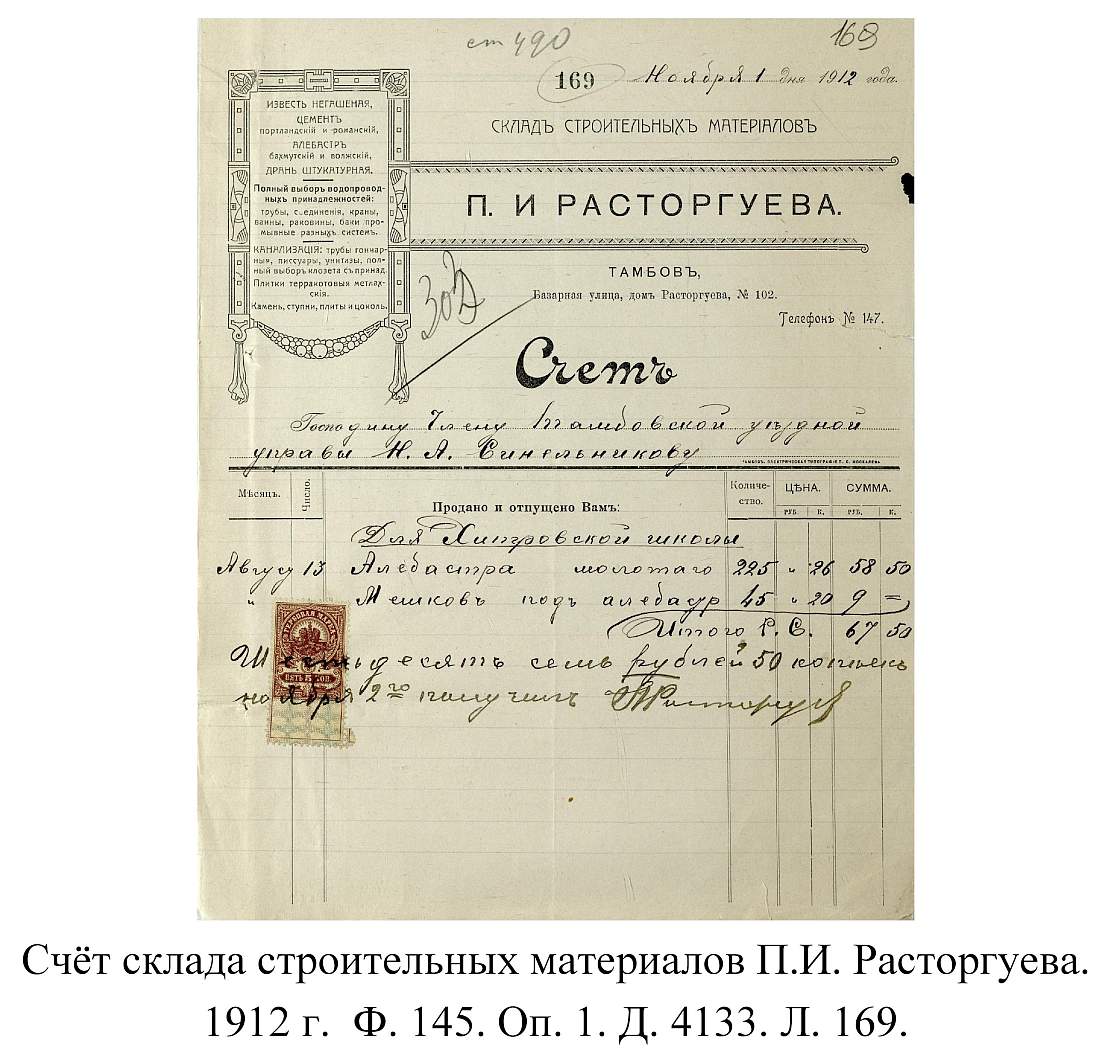 ст 490
169
169 Ноября 1 дня 1912 года.
СКЛАДЪ СТРОИТЕЛЬНЫХЪ МАТЕРІАЛОВЪ
П. И РАСТОРГУЕВА.
ТАМБОВЪ,
Базарная улица, домъ Расторгуева, № 102.
Телефонъ № 147.
ИЗВЕСТЬ НЕГАШЕНАЯ,
ЦЕМЕНТЪ
портландскій и романскій,
АЛЕБАСТРЪ
бахмутскій и волжскій,
ДРАНЬ ШТУКАТУРНАЯ.
Полный выборъ водопровод-
ныхъ принадлежностей:
трубы, съединенія, краны,
ванны, раковины, баки про-
мывные разныхъ системъ.
КАНАЛИЗАЦІЯ: трубы гончар-
ныя, писсуары, унитазы, пол-
ный выборъ клозета съ принад.
Плитки терракотовыя метлах-
скія.
Камень, ступни, плиты и цоколь.
Счетъ
Господину Члену Тамбовской уѣздной
управы Н. А. Синельникову
Мѣсяцъ. Число. Продано и отпущено Вамъ: Количе-ство. ЦѢНА. СУММА.
РУБ. К. РУБ. К.
Для Хитровской школы
Август 13 Алебастра молотаго 225 „ 26 58 50
„ Мешковъ подъ алебастр 45 „ 20 9 =
Итого Р. С. 67 50
Шестьдесятъ семь рублей 50 копѣекъ
ноября 2го получилъ П Расторгуев
ГЕРБОВАЯ МАРКА
ПЯТЬ 5 КОП
Счёт склада строительных материалов П.И. Расторгуева.
1912 г. Ф. 145. Оп. 1. Д. 4133. Л. 169.